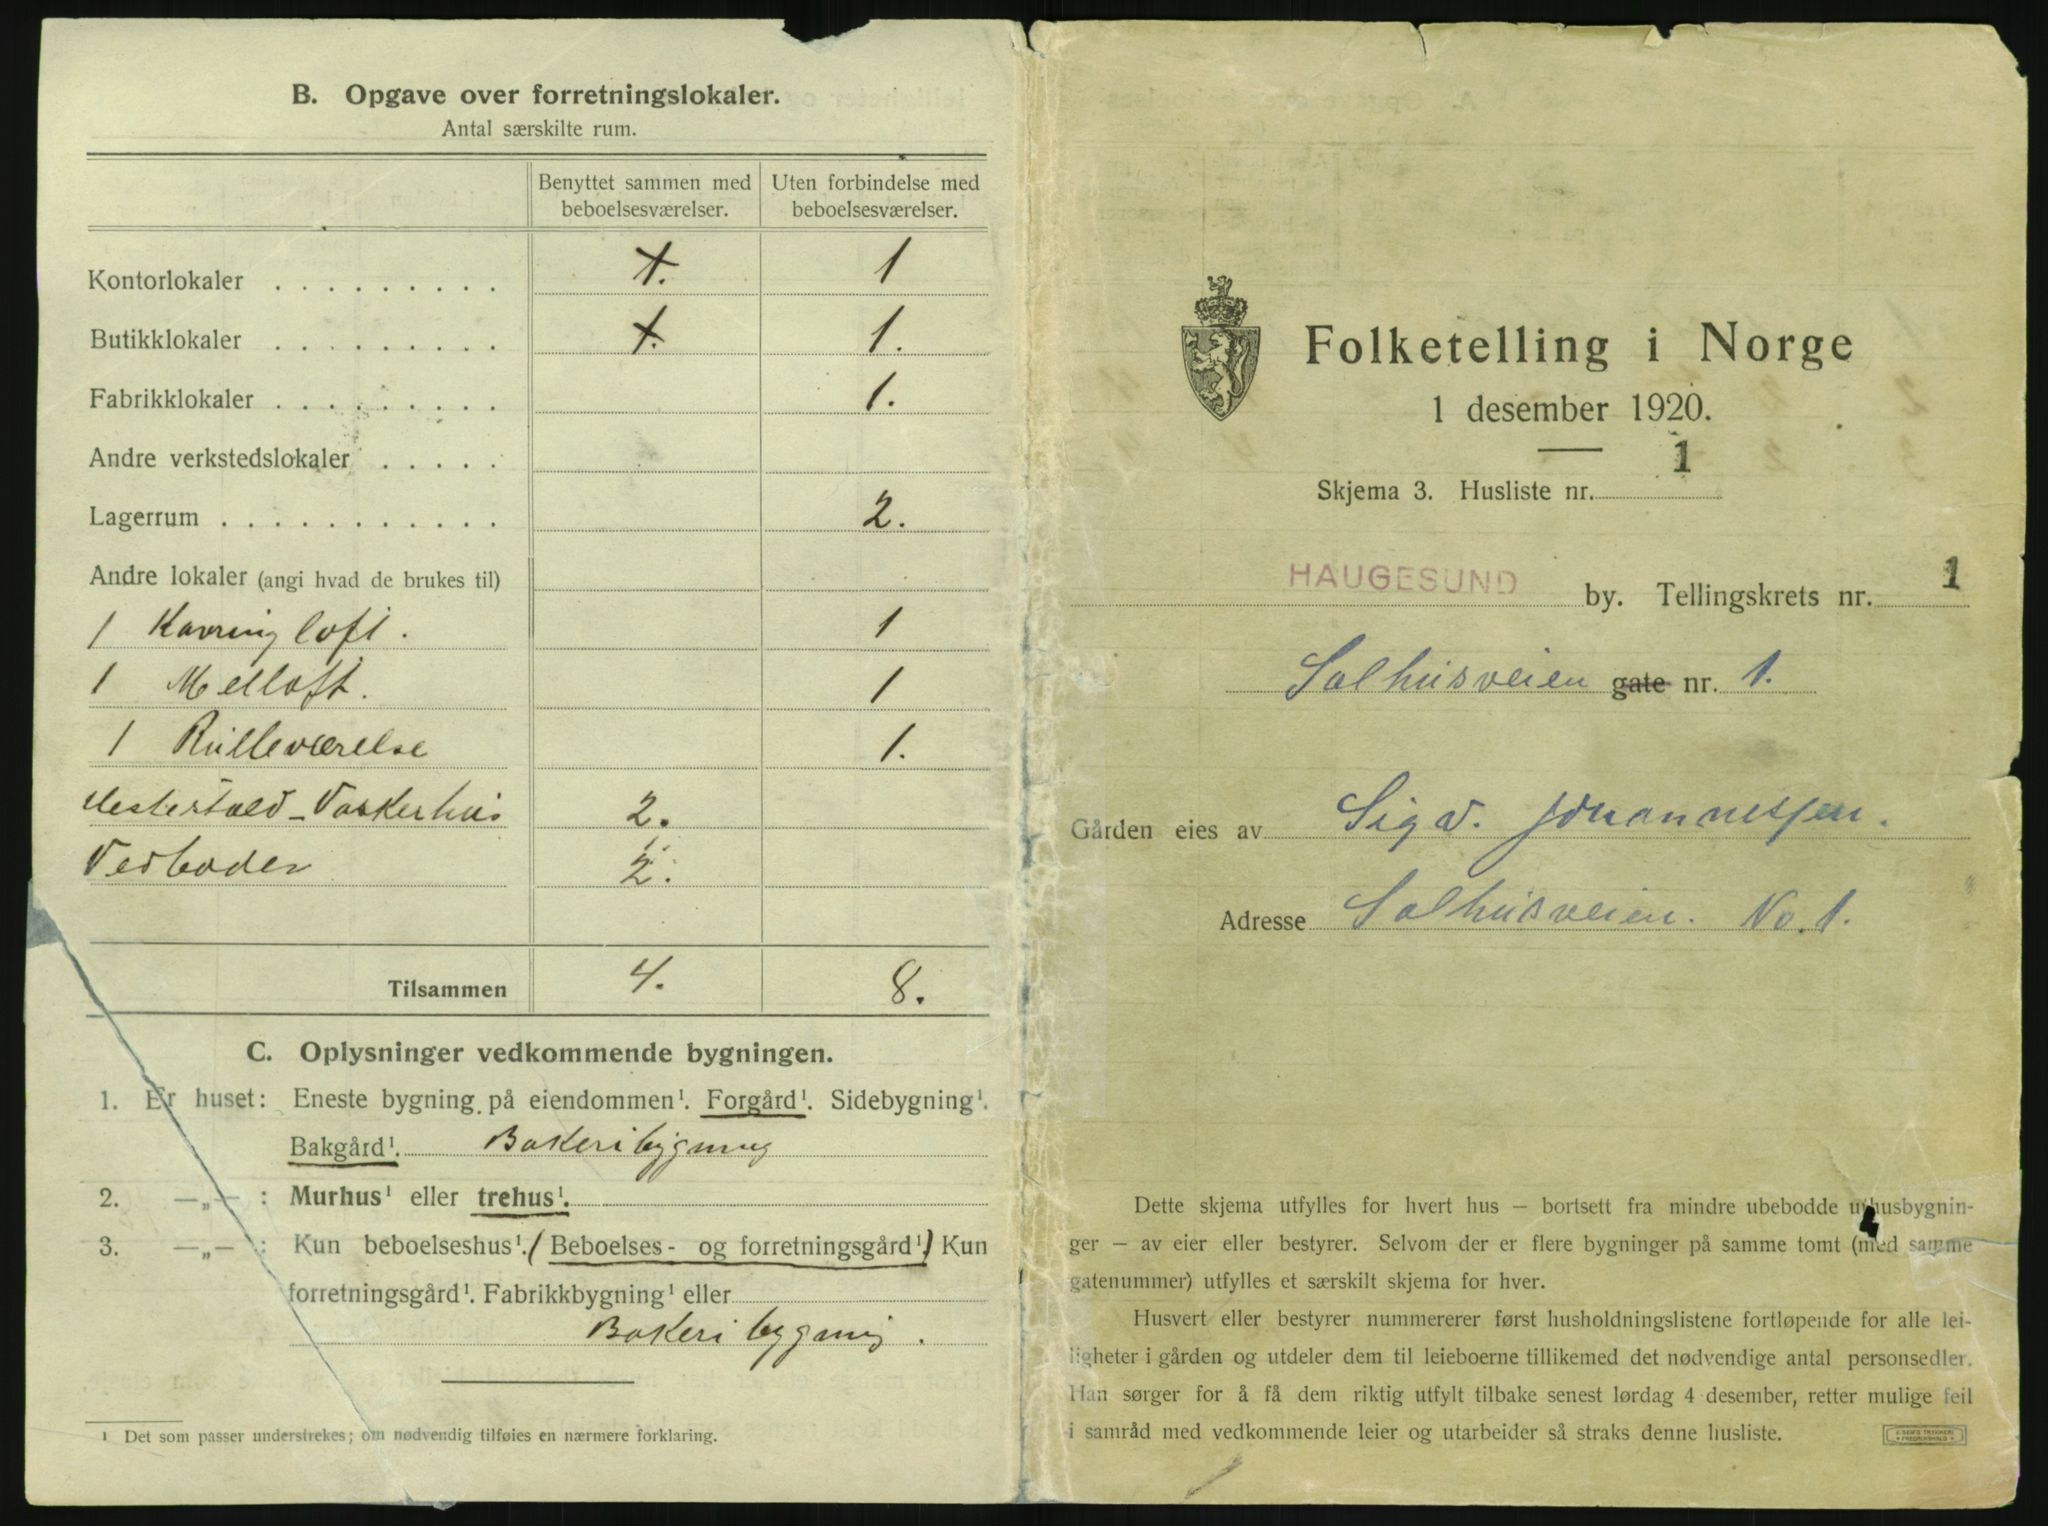 B. Opgave over forretningslokaler.
Antal særskilte rum.
Benyttet sammen med beboelsesværelser.
Uten forbindelse med beboelsesværelser.
Kontorlokaler . . . . . . . . . 1. 1
Butikklokaler . . . . . . . . . 1. 1.
Fabrikklokaler . . . . . . . . . 1.
Andre verkstedslokaler . . . . .
Lagerrum . . . . . . . . . . . . 2.
Andre lokaler (angi hvad de brukes til)
1 Kavringloft. 1
1 Melloft. 1
1 Rulleværelse 1.
Hestestald – Vaskerhus 2.
Vedboder 2.
Tilsammen 4. 8.
C. Oplysninger vedkommende bygningen.
1. Er huset: Eneste bygning på eiendommen¹. Forgård¹. Sidebygning¹.
Bakgård¹. Bakeribygning
2. —„— : Murhus¹ eller trehus¹.
3. —„— : Kun beboelseshus¹. (Beboelses- og forretningsgård¹.) Kun
forretningsgård¹. Fabrikkbygning¹ eller
Bakeribygning.
¹ Det som passer understrekes; om nødvendig tilføies en nærmere forklaring.
Folketelling i Norge
1 desember 1920.
Skjema 3. Husliste nr. 1
HAUGESUND by. Tellingskrets nr. 1
Salhusveien gate nr. 1.
Gården eies av Sigv. Johannessen.
Adresse Salhusveien. No. 1.
Dette skjema utfylles for hvert hus — bortsett fra mindre ubebodde uthusbygnin-
ger — av eier eller bestyrer. Selvom der er flere bygninger på samme tomt (med samme
gatenummer) utfylles et særskilt skjema for hver.
Husvert eller bestyrer nummererer først husholdningslistene fortløpende for alle lei-
ligheter i gården og utdeler dem til leieboerne tillikemed det nødvendige antal personsedler.
Han sørger for å få dem riktig utfylt tilbake senest lørdag 4 desember, retter mulige feil
i samråd med vedkommende leier og utarbeider så straks denne husliste.